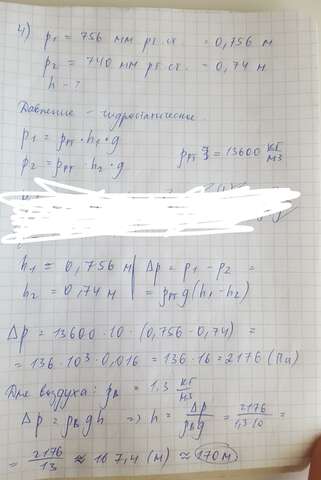 4) p1 = 756 мм рт. ст. = 0,756 м
p2 = 740 мм рт. ст. = 0,74 м
h - ?
Давление - гидростатическое.
p1 = ρрт · h1 · g
p2 = ρрт · h2 · g
ρрт = 13600 кг/м3
h1 = 0,756 м | Δp = p1 - p2 =
h2 = 0,74 м | = ρрт g (h1 - h2)
Δp = 13600 · 10 · (0,756 - 0,74) =
= 136 · 10³ · 0,016 = 136 · 16 = 2176 (Па)
Для воздуха: ρв = 1,3 кг/м3
Δp = ρв g h => h = Δp/ρв g = 2176/1,3·10 =
= 2176/13 ≈ 167,4 (м) ≈ 170 м